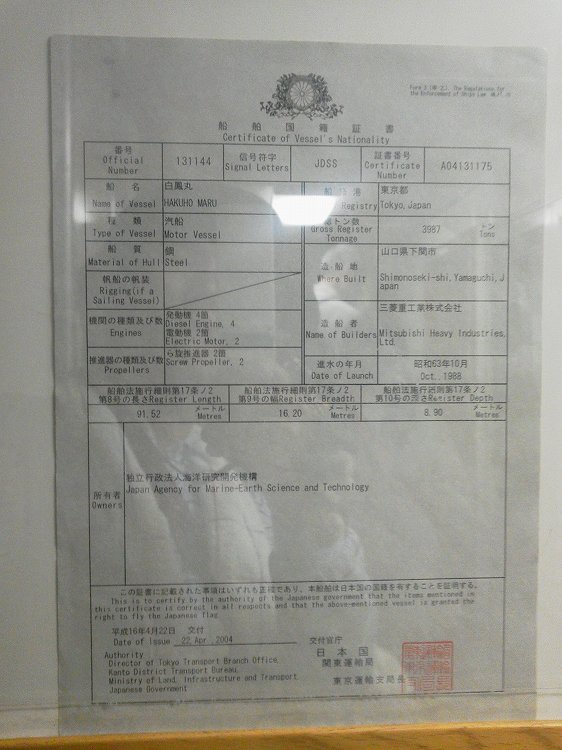 Form 3 (第２), The Regulations for
the Enforcement of Ships Law
船舶国籍証書
Certificate of Vessel's Nationality
番号
Official
Number
131144
信号符字
Signal Letters
JDSS
証書番号
Certificate
Number
A04131175
船 名
Name of Vessel
白鳳丸
HAKUHO MARU
船 港
Registry
東京都
Tokyo,Japan
種 類
Type of Vessel
汽船
Motor Vessel
トン数
Gross Register
Tonnage
3987
トン
Tons
船 質
Material of Hull
鋼
Steel
造 船 地
Where Built
山口県下関市
Shimonoseki-shi,Yamaguchi,J
apan
帆船の帆装
Rigging(if a
Sailing Vessel)
機関の種類及び数
Engines
発動機 4箇
Diesel Engine, 4
電動機 2箇
Electric Motor, 2
造 船 者
Name of Builders
三菱重工業株式会社
Mitsubishi Heavy Industries,
Ltd.
推進器の種類及び数
Propellers
ら旋推進器 2箇
Screw Propeller, 2
進水の年月
Date of Launch
昭和63年10月
Oct.,1988
船舶法施行細則第17条ノ2
第8号の長さRegister Length
船舶法施行細則第17条ノ2
第9号の幅Register Breadth
船舶法施行細則第17条ノ2
第10号の深さRegister Depth
91.52
メートル
Metres
16.20
メートル
Metres
8.90
メートル
Metres
所有者
Owners
独立行政法人海洋研究開発機構
Japan Agency for Marine-Earth Science and Technology
この証書に記載された事項はいずれも正確であり、本船舶は日本国の国籍を有することを証明する。
This is to certify by the authority of the Japanese government that the items mentioned in
this certificate is correct in all respects and that the above-mentioned vessel is granted the
right to fly the Japanese flag.
平成16年4月22日 交付
Date of Issue 22.Apr.,2004
交付官庁
Authority
Director of Tokyo Transport Branch Office,
Kanto District Transport Bureau,
Ministry of Land, Infrastructure and Transport
Japanese Government
日本国
関東運輸局
東京運輸支局長